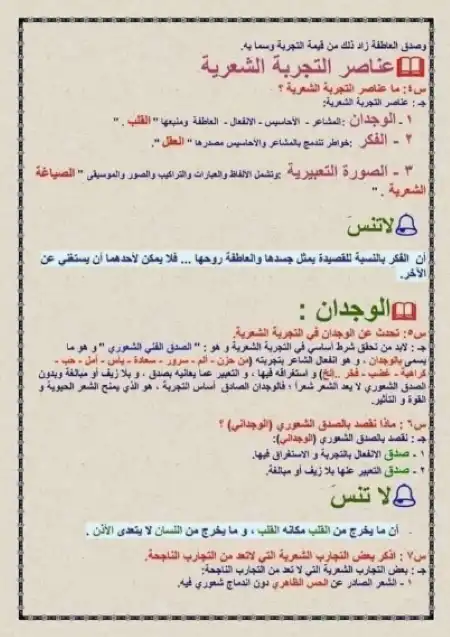 وصدق العاطفة زاد ذلك من قيمة التجربة وسما به.
عناصر التجربة الشعرية
س٤: ما عناصر التجربة الشعرية ؟
جـ : عناصر التجربة الشعرية:
١ - الوجدان :المشاعر - الأحاسيس - الانفعال - العاطفة ومنبعها " القلب . "
٢ - الفكر :خواطر تندمج بالمشاعر والأحاسيس مصدرها " العقل ".
٣ - الصورة التعبيرية :وتشمل الألفاظ والعبارات والتراكيب والصور والموسيقى " الصياغة
الشعرية . "
لاتنسَ
أن الفكر بالنسبة للقصيدة يمثل جسدها والعاطفة روحها ... فلا يمكن لأحدهما أن يستغني عن
الآخر.
الوجدان :
س٥: تحدث عن الوجدان في التجربة الشعرية.
جـ : لابد من تحقق شرط أساسي في التجربة الشعرية و هو : " الصدق الفني الشعوري " و هو ما
يسمى بالوجدان ، و هو انفعال الشاعر بتجربته (من حزن - ألم - سرور - سعادة - يأس - أمل - حب -
كراهية - غضب - فخر ..إلخ) و استغراقه فيها ، و التعبير عما يعانيه بصدق ، و بلا زيف أو مبالغة وبدون
الصدق الشعوري لا يعد الشعر شعراً ؛ فالوجدان الصادق أساس التجربة ، هو الذي يمنح الشعر الحيوية و
القوة و التأثير.
س٦ : ماذا نقصد بالصدق الشعوري (الوجداني) ؟
جـ : نقصد بالصدق الشعوري (الوجداني):
١ - صدق الانفعال بالتجربة و الاستغراق فيها.
٢ - صدق التعبير عنها بلا زيف أو مبالغة.
لا تنسَ
. أن ما يخرج من القلب مكانه القلب ، و ما يخرج من اللسان لا يتعدى الأذن .
س٧ : اذكر بعض التجارب الشعرية التي لاتعد من التجارب الناجحة.
جـ : بعض التجارب الشعرية التي لا تعد من التجارب الناجحة:
١ - الشعر الصادر عن الحس الظاهري دون اندماج شعوري فيه.